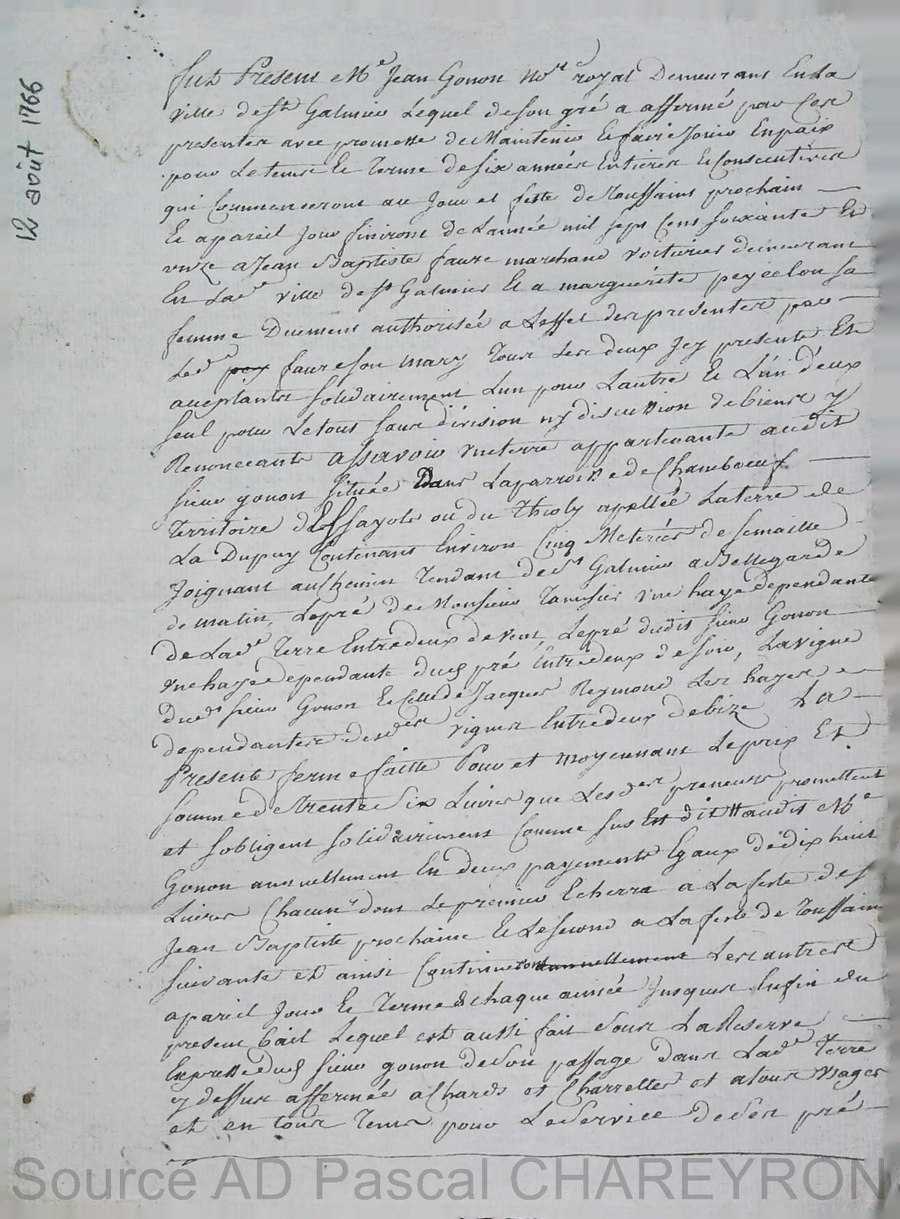 12 août 1766
fut Present Me Jean Gonon Nore royal Demeurant En la
ville de St Galmier Lequel de son gré a affermé par Ces
presentes avec promesse de Maintenir Et faire Jouir En paix
pour Le tems Et Terme de six années Entieres Et Consecutives
qui Commenceront au Jour et feste de toussaint prochain
Et a pareil Jour finiront de L'année mil sept Cent soixante Et
unze a Jean Baptiste faure marchand voiturier demeurant
En Lade ville de St Galmier Et a marguerite peycelon sa
femme Duement authorisée a L'effet des presentes par
Led faure son mary Tous Les deux Icy presents Et
acceptants solidairement L'un pour L'autre Et L'un d'eux
seul pour Le tout sans division ny discution de biens y
Renonceants assavoir une terre appartenante audit
sieur gonon située Dans La parroisse de Chambœuf
Territoire d'Essayols ou du Thioly apellée La terre de
La Dupuy Contenant Environ Cinq Meterées de semaille
Joignant au Chemin Tendant de St Galmier a Bellegarde
de matin, Le pré de Monsieur Tamisier une haye dependante
de Lade Terre Entredeux de vent, Le pré dudit sieur Gonon
une haye dependante dud pré Entredeux de soir, La vigne
dud sieur Gonon Et Celle de Jacques Reymond Les hayes
dependantes desdes vignes Entredeux de bize La
Presente ferme faitte Pour et moyennant Le prix Et
somme de trente six Livres que Lesds preneurs promettent
et s'obligent solidairement Comme sus Est dit audit Me
Gonon annuellement En deux payements Egaux de dix huit
Livres Chacun dont Le premier Echerra a La feste de St
Jean Baptiste prochaine Et Le second a La feste de Toussaint
suivante et ainsi Continueront annuellement Les autres
a pareil Jour Et Terme de chaque année Jusques En fin du
present bail Lequel est aussi fait sous La Reserve
Expresse dud sieur gonon de son passage dans Lade Terre
cy dessus affermée a Chards et Charrettes et a tous Usages
et en tous Tems pour Le Service de Son pré
Source AD Pascal CHAREYRON